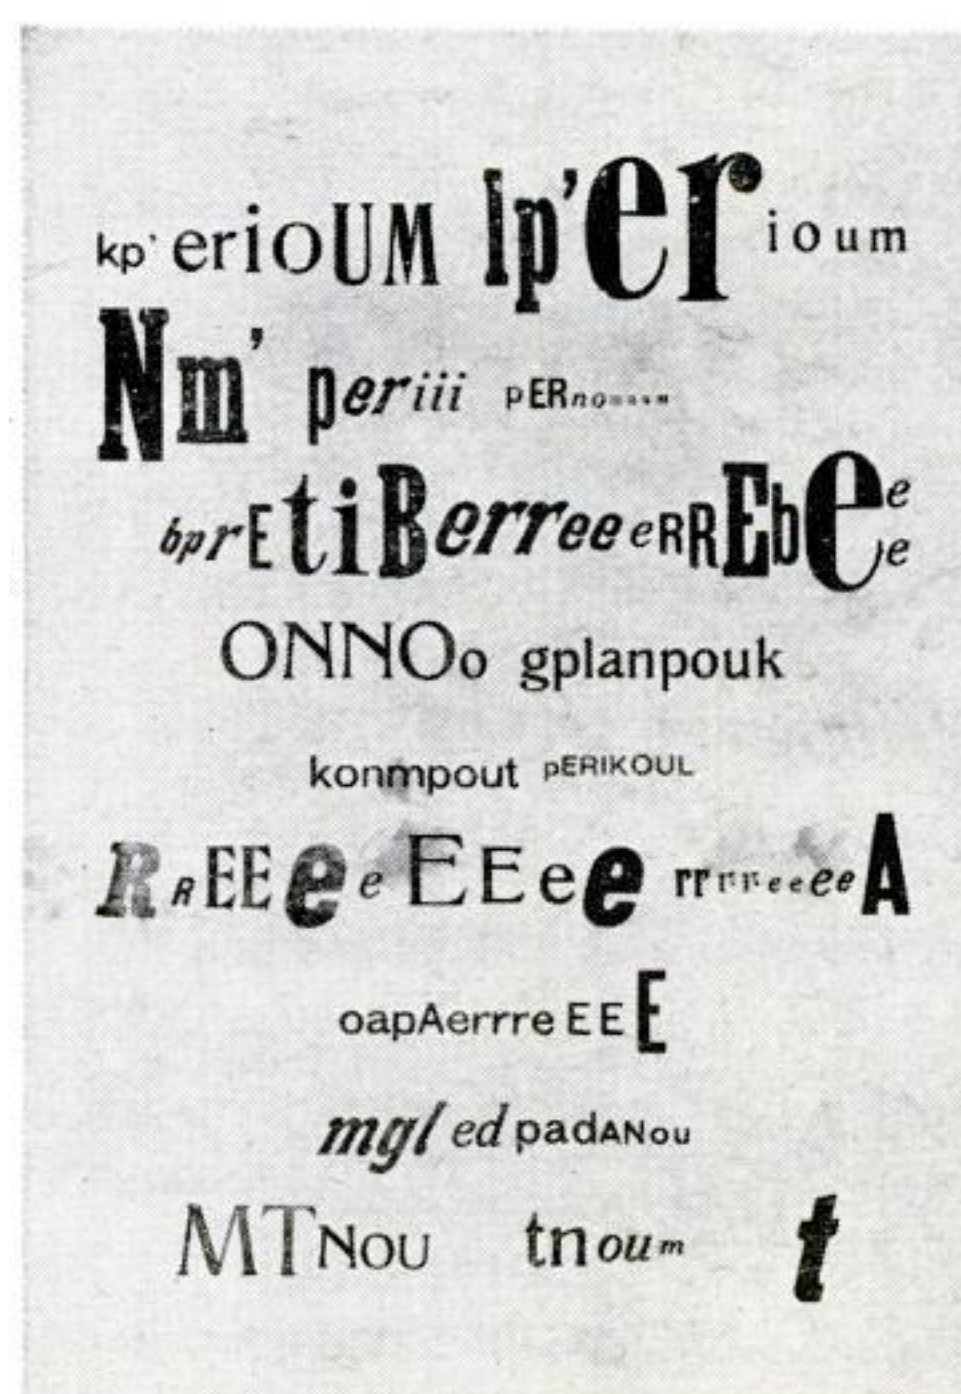 kp' erioUM lp'er ioum
Nm' periii pERno
bprEtiBerreeeeRREbEe e e
ONNOo gplanpouk
konmpout pERIKOUL
RREEeeEEeerrrrrreeeeA
oapAerrreEEE
mgl ed padANou
MTNOU tnoum t